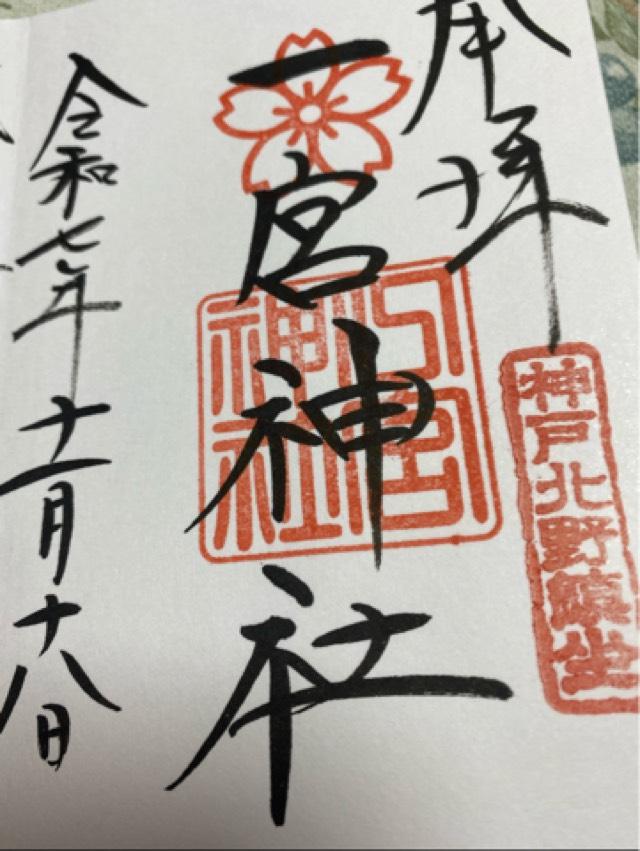 奉拝
神戸北野鎮坐
一宮神社
一宮神社
令和七年十一月十八日